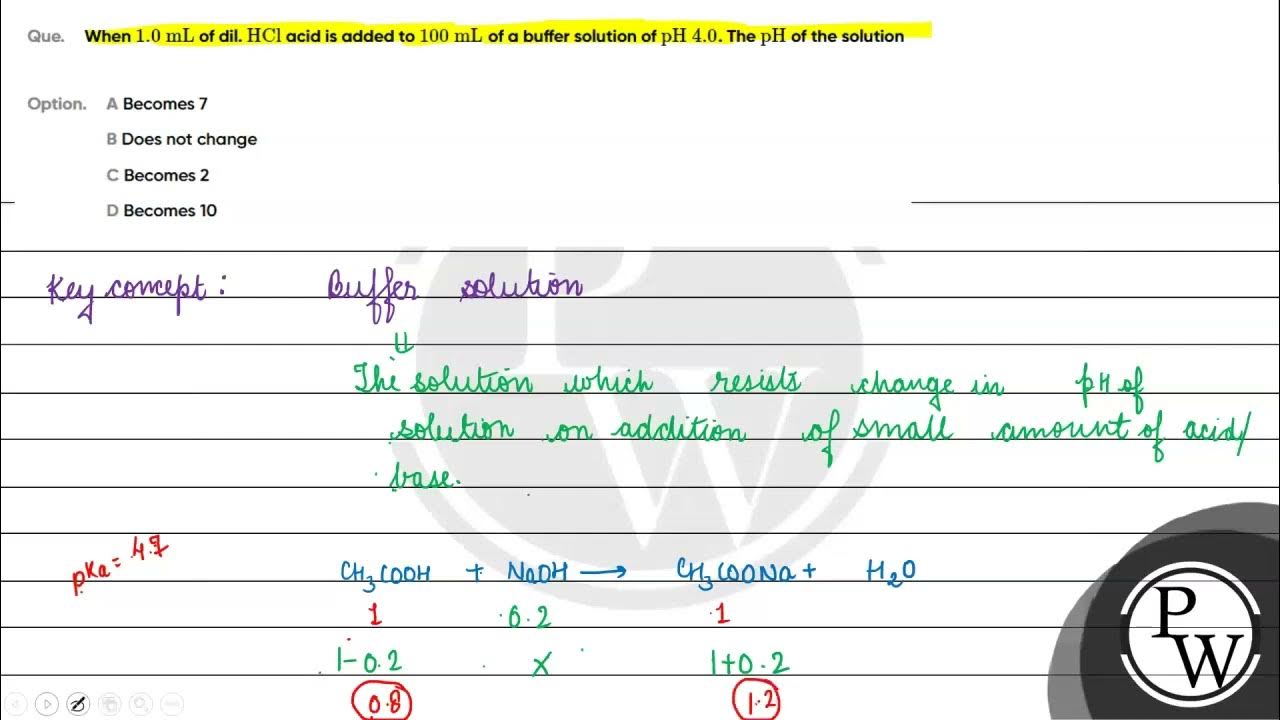 Que. When 1.0 mL of dil. HCl acid is added to 100 mL of a buffer solution of pH 4.0. The pH of the solution
Option. A Becomes 7
B Does not change
C Becomes 2
D Becomes 10
Key concept : Buffer solution
⇓
The solution which resists change in pH of
solution on addition of small amount of acid/
base.
pKa = 4.7
CH₃COOH + NaOH ⟶ CH₃COONa + H₂O
1 0.2 1
1-0.2 x 1+0.2
0.8 1.2
P
W